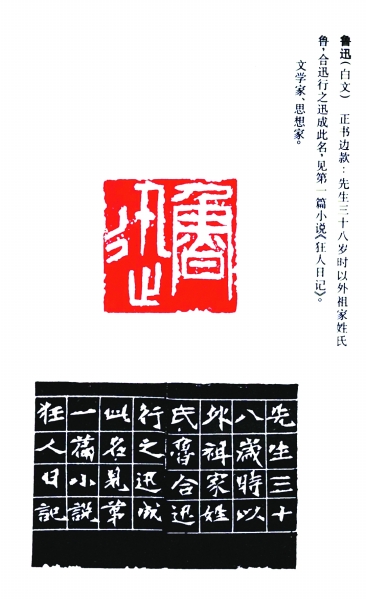 鲁迅（白文） 正书边款：先生三十八岁时以外祖家姓氏
鲁，合迅行之迅成此名，见第一篇小说《狂人日记》。
文学家、思想家。
魯
迅
先生三十
八歲時以
外祖家姓
氏魯合迅
行之迅成
此名見第
一篇小說
狂人日記